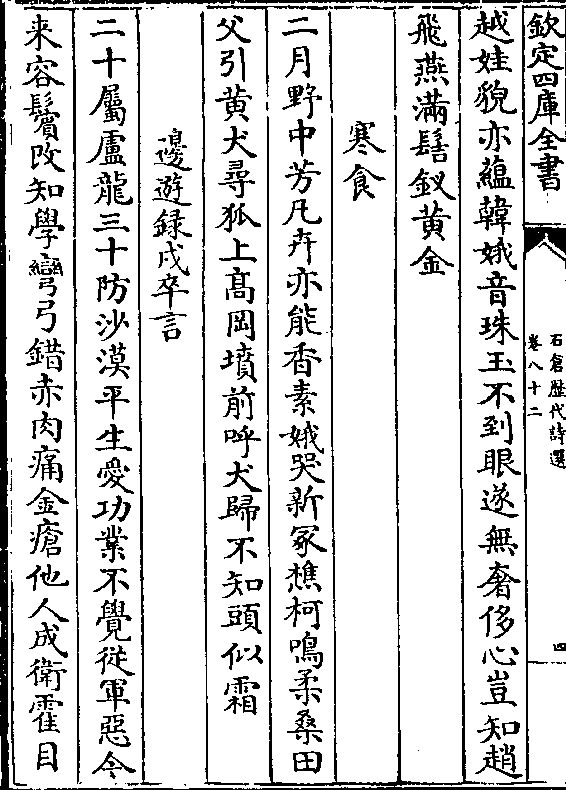 欽定四庫全書
石倉歷代詩選
卷八十二
四
越娃貌亦蘊韓娥音珠玉不到眼遂無奢侈心豈知趙
飛燕滿髻釵黃金
寒食
二月野中芳凡卉亦能香素娥哭新冢樵柯鳴柔桑田
父引黄犬尋狐上髙岡墳前呼犬歸不知頭似霜
邊遊録戍卒言
二十屬盧龍三十防沙漠平生愛功業不覺從軍惡今
来容鬢改知學彎弓錯赤肉痛金瘡他人成衛霍目